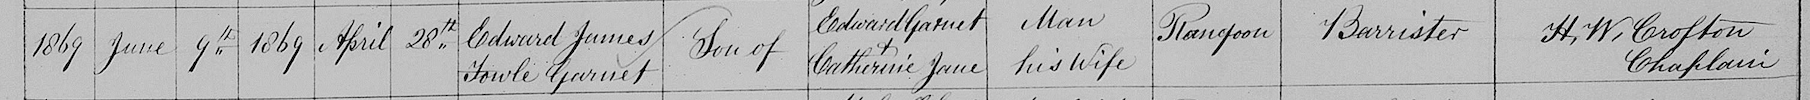 1869 June 9th 1869 April 28th Edward James Son of Edward Garnet Man Rangoon Barrister H. W. Crofton
Fowle Garnet + Catherine Jane his Wife Chaplain